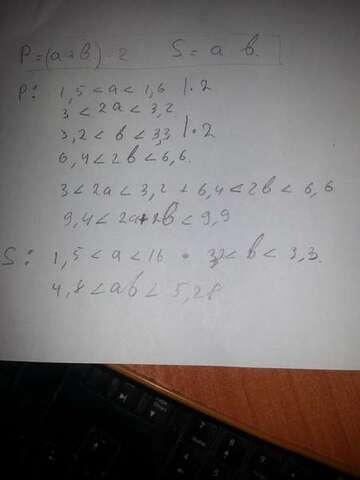 P=(a+b)·2 S=a b
P: 1,5<a<1,6 |·2
3<2a<3,2
3,2<b<3,3 |·2
6,4<2b<6,6
3<2a<3,2 + 6,4<2b<6,6
9,4<2a+2b<9,9
S: 1,5<a<16 · 3,2<b<3,3
4,8<ab<5,28